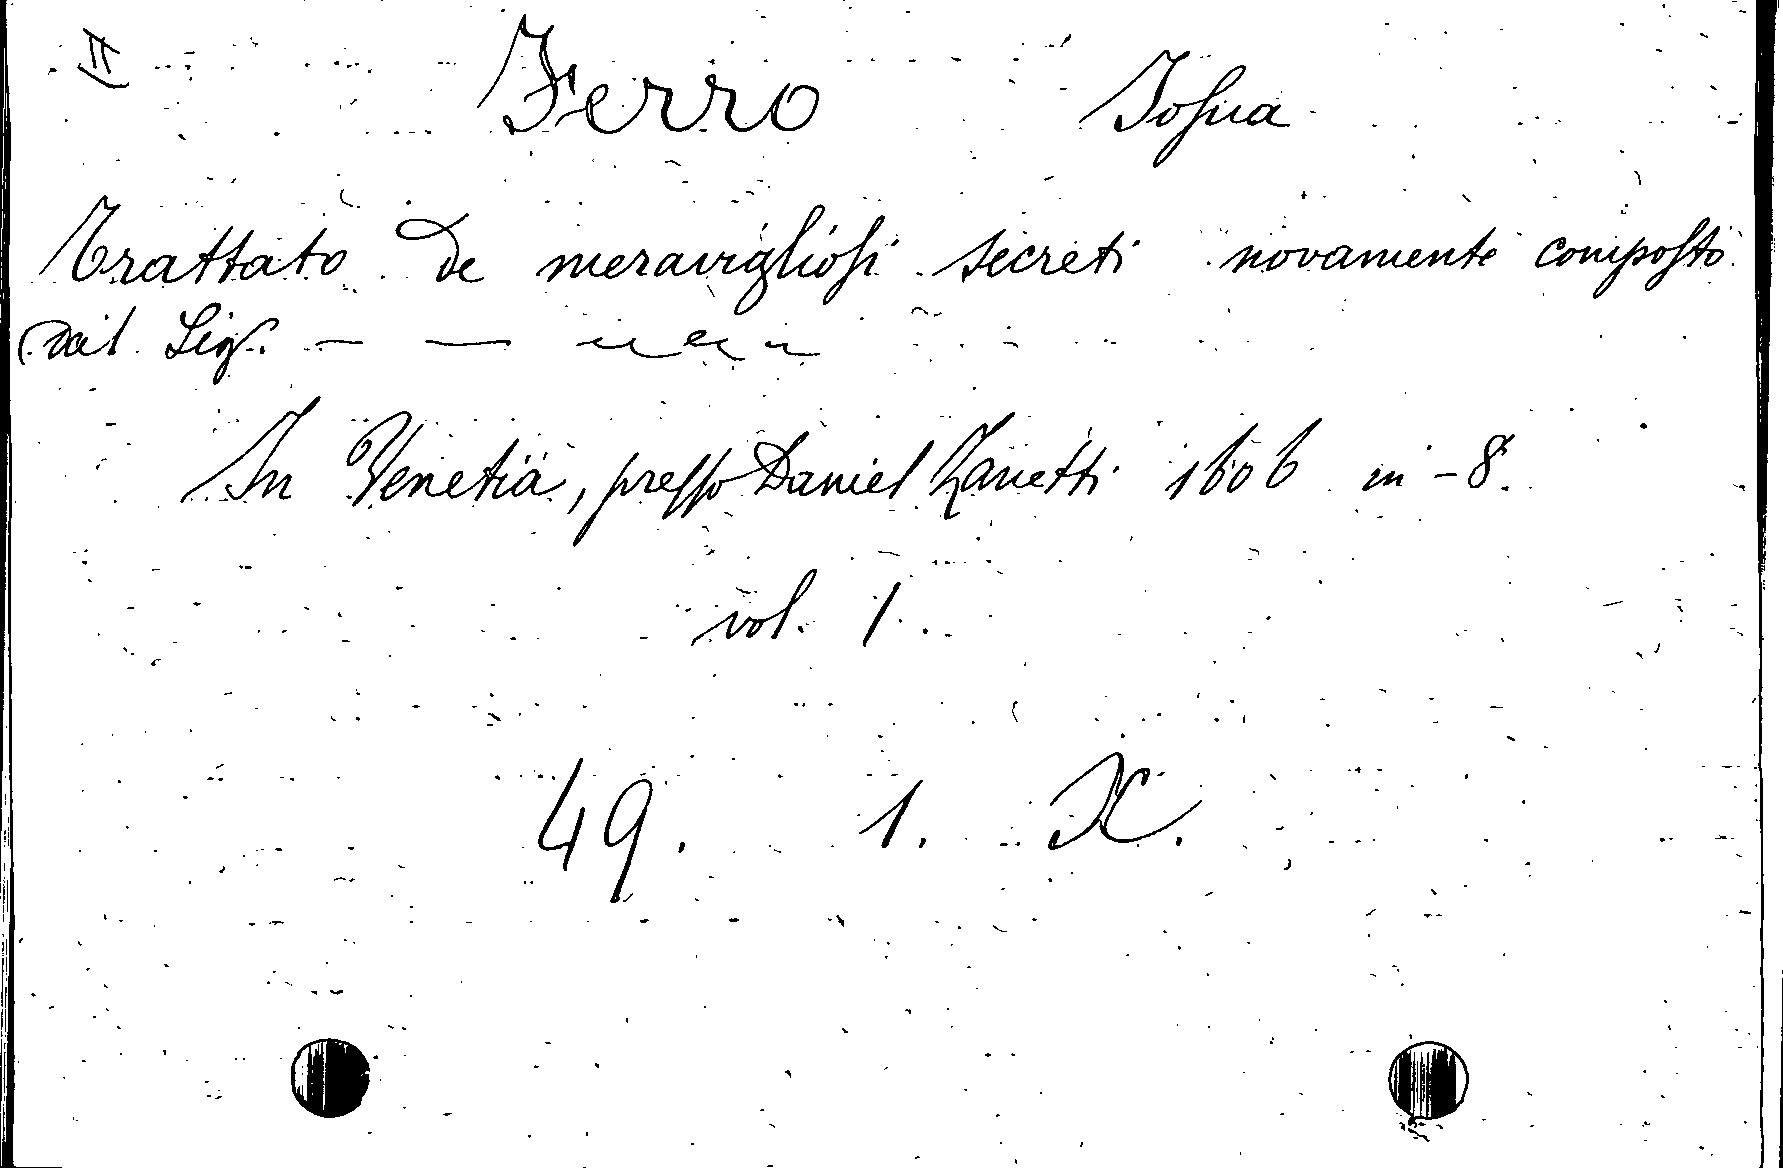 II Ferro Josua
Trattato de meravigliosi secreti novamente composto
dal Sig. — —
In Venetia, presso Daniel Zanetti 1606 in-8.
vol. 1.
49. 1. X.